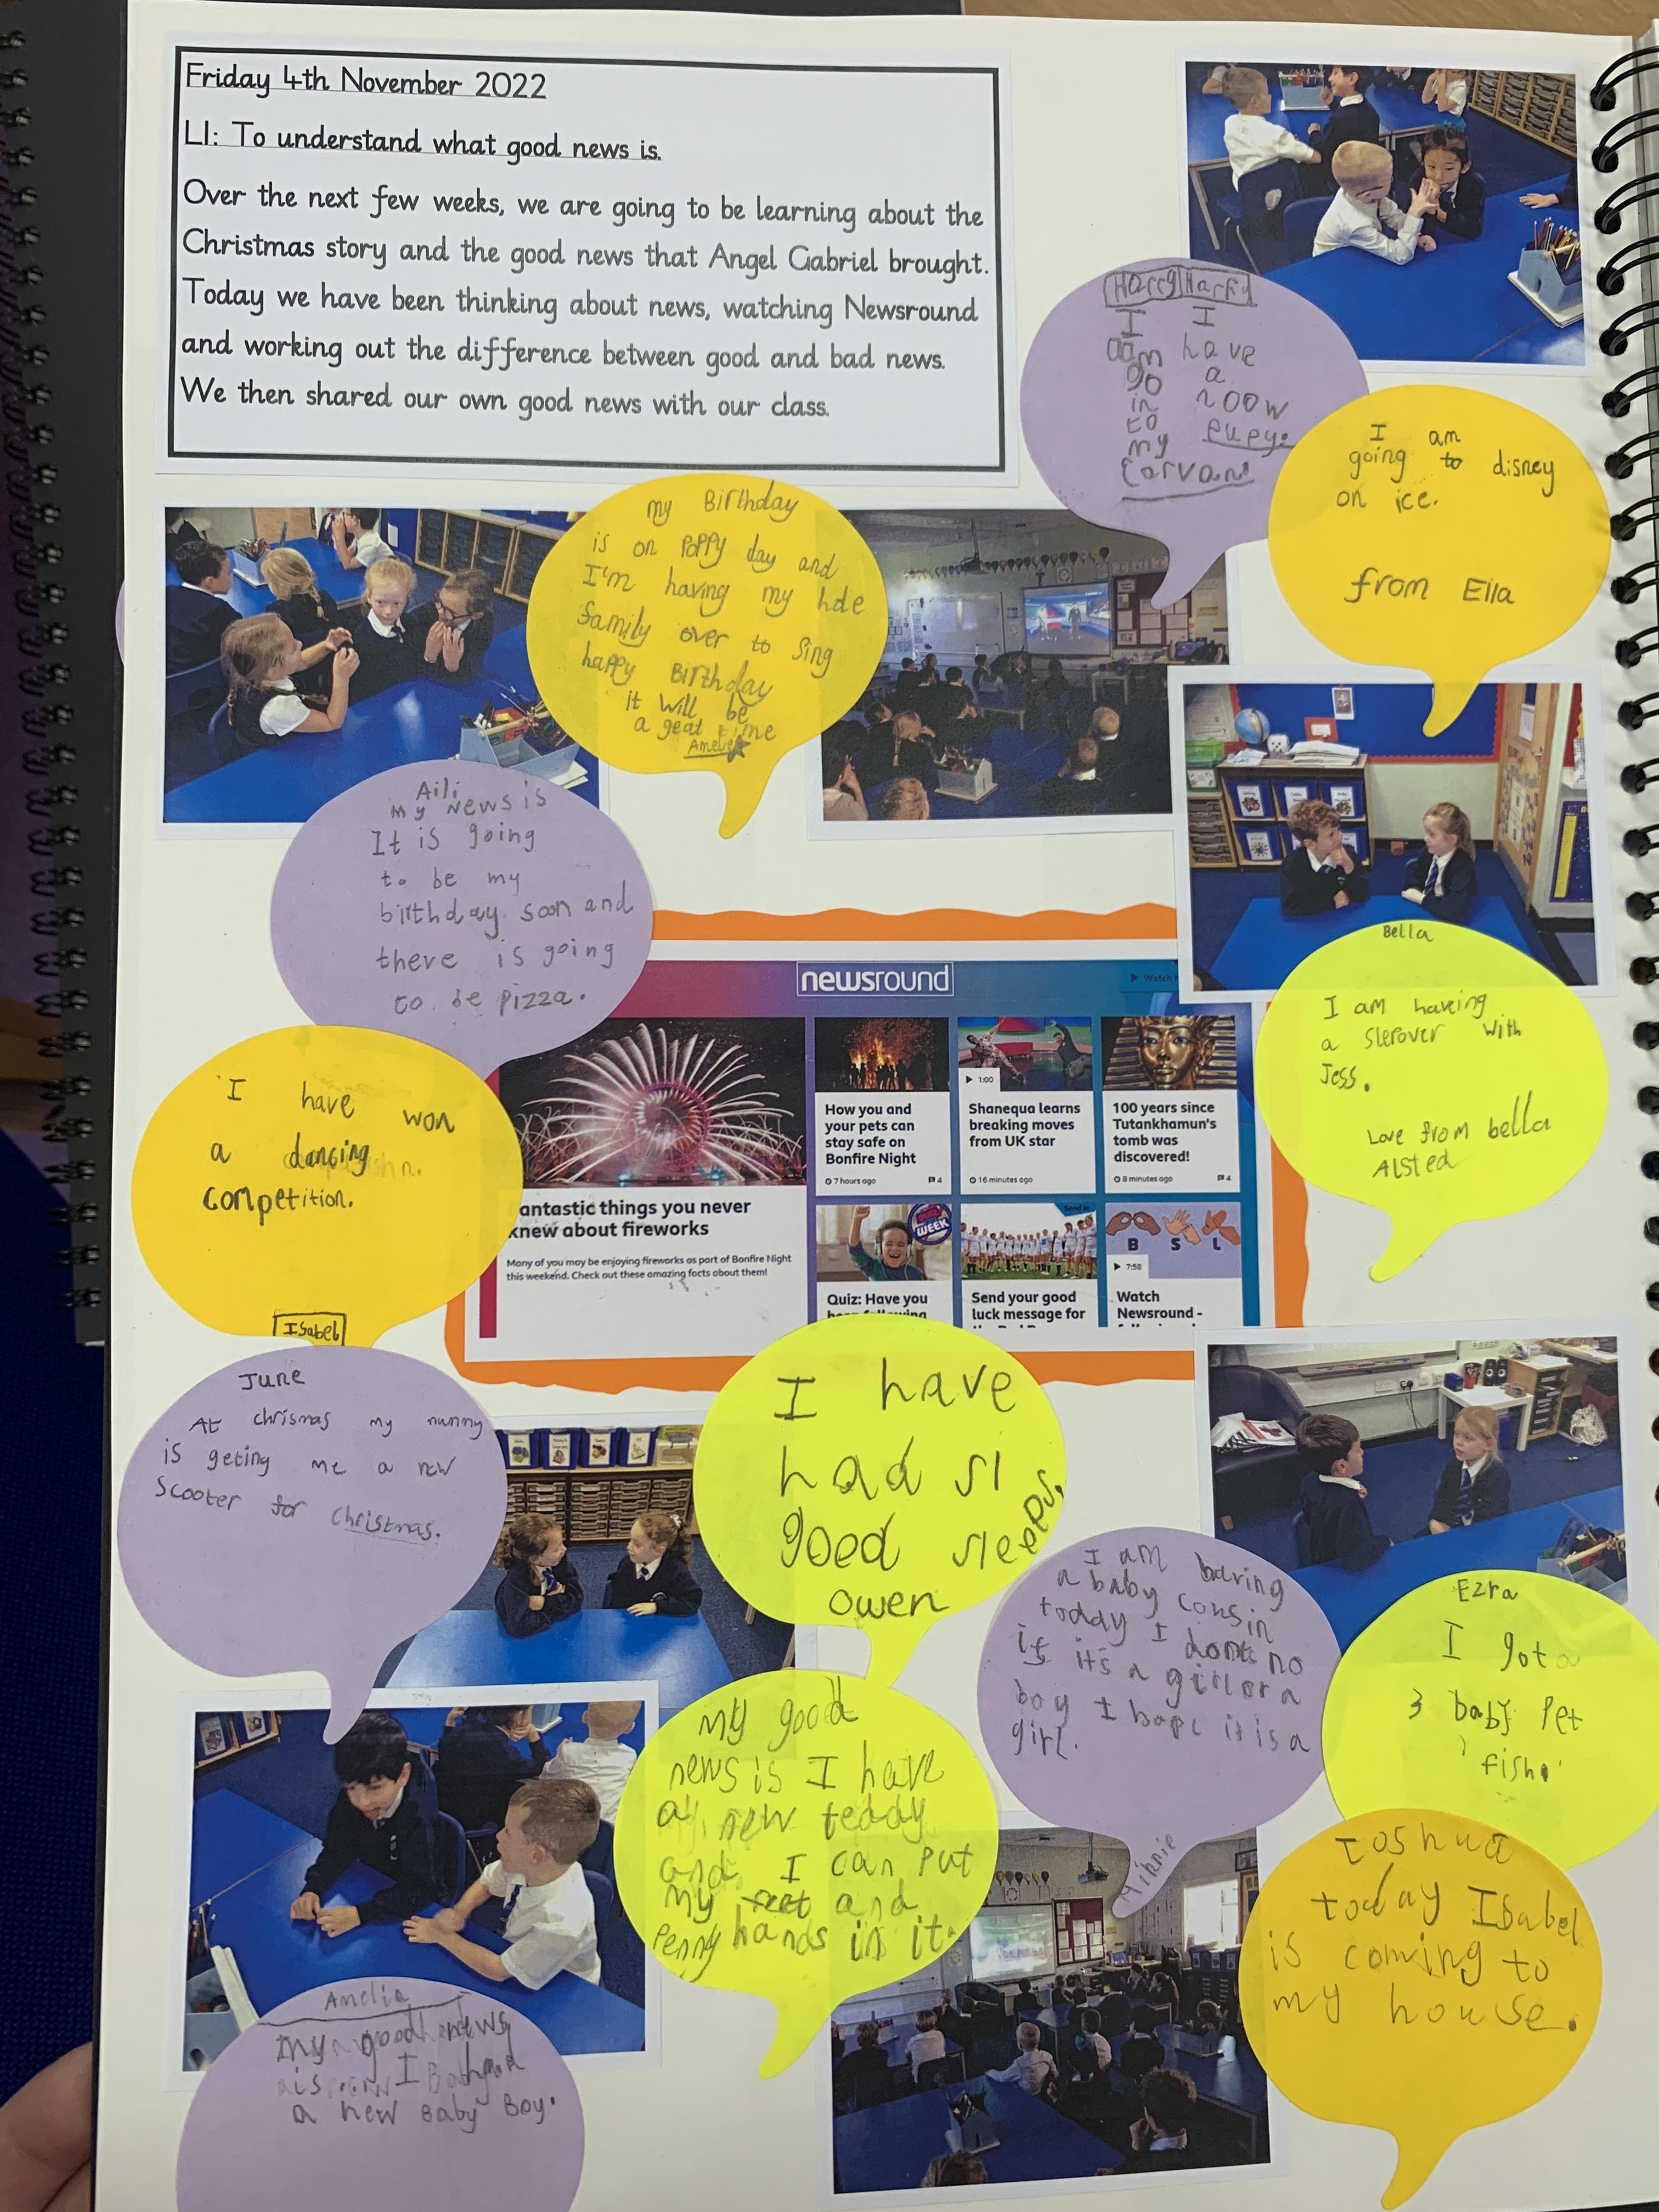 Friday 4th November 2022
LI: To understand what good news is.
Over the next few weeks, we are going to be learning about the
Christmas story and the good news that Angel Gabriel brought.
Today we have been thinking about news, watching Newsround
and working out the difference between good and bad news.
We then shared our own good news with our class.
Harry
I
am
go
in
to
my
Carvan
Harry
I
have
a
noow
pupy.
I am
going to disney
on ice.
from Ella
my Birthday
is on Poppy day and
I'm having my hole
family over to Sing
happy Birthday
it will be
a geat time
Amelie
Aili
my News is
It is going
to be my
birthday soon and
there is going
to be pizza.
Bella
I am having
a slerover with
Jess.
Love from bella
Alsted
I have won
a dancing
competition.
Isabel
newsround
Watch
antastic things you never
knew about fireworks
Many of you may be enjoying fireworks as part of Bonfire Night
this weekend. Check out these amazing facts about them!
How you and
your pets can
stay safe on
Bonfire Night
7 hours ago
4
1:00
Shanequa learns
breaking moves
from UK star
16 minutes ago
100 years since
Tutankhamun's
tomb was
discovered!
8 minutes ago
4
WEEK
Quiz: Have you
Send in
Send your good
luck message for
B S L
7:58
Watch
Newsround -
June
At chrismas my nunny
is geting me a new
Scooter for Christmas.
I have
had si
good sleeps.
owen
I am having
a baby cousin
today I dont no
if it's a girl or a
boy I hope it is a
girl.
Minnie
Ezra
I got
3 baby Pet
fish
my good
news is I have
a new teddy
and I can put
my feet and
hands in it.
Penny
Joshua
today Isabel
is coming to
my house.
Amelia
my good news
is I
a new Baby Boy.